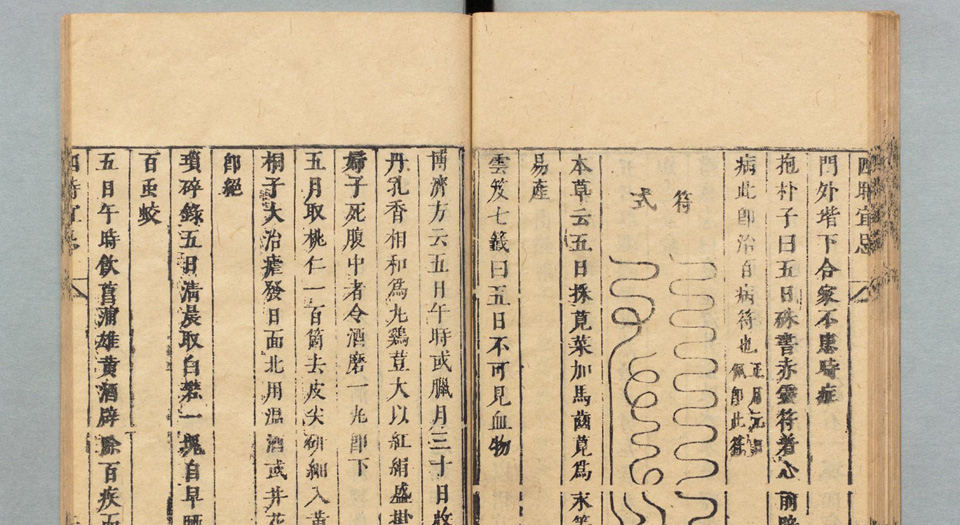 四時宜忌
門外堦下合家不患時症
抱朴子曰五日硃書赤靈符著心前
病此卽治百病符也
正月元旦
佩卽此符
符
式
本草云五日採莧菜加馬齒莧爲末等
易產
雲笈七籤曰五日不可見血物
博濟方云五日午時或臘月三十日收
丹乳香相和爲丸鷄荳大以紅絹盛掛
婦子死腹中者令酒磨一丸卽下
五月取桃仁一百箇去皮尖硏細入黃
桐子大治瘧發日面北用温酒或井花
卽絕
瑣碎錄五日清晨取白礬一塊自早晒
百虫蛟
五日午時飲菖蒲雄黃酒辟除百疾而
四時宜忌